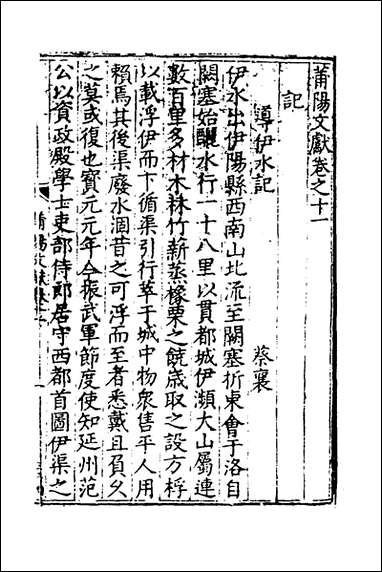 莆陽文獻卷之十一
記
導伊水記 蔡襄
伊水出伊陽縣西南山北流至闕塞折東會于洛自
闕塞始釃水行二十八里以貫都城伊瀕大山屬連
數百里多材木林竹薪蒸橡栗之饒歲取之設方桴
以載浮伊而下循渠引行萃于城中物衆售平人用
賴焉其後渠廢水涸昔之可浮而至者悉戴且負久
之莫或復也寶元元年今振武軍節度使知延州范
公以資政殿學士吏部侍郎居守西都首圖伊渠之
莆陽文獻卷十一